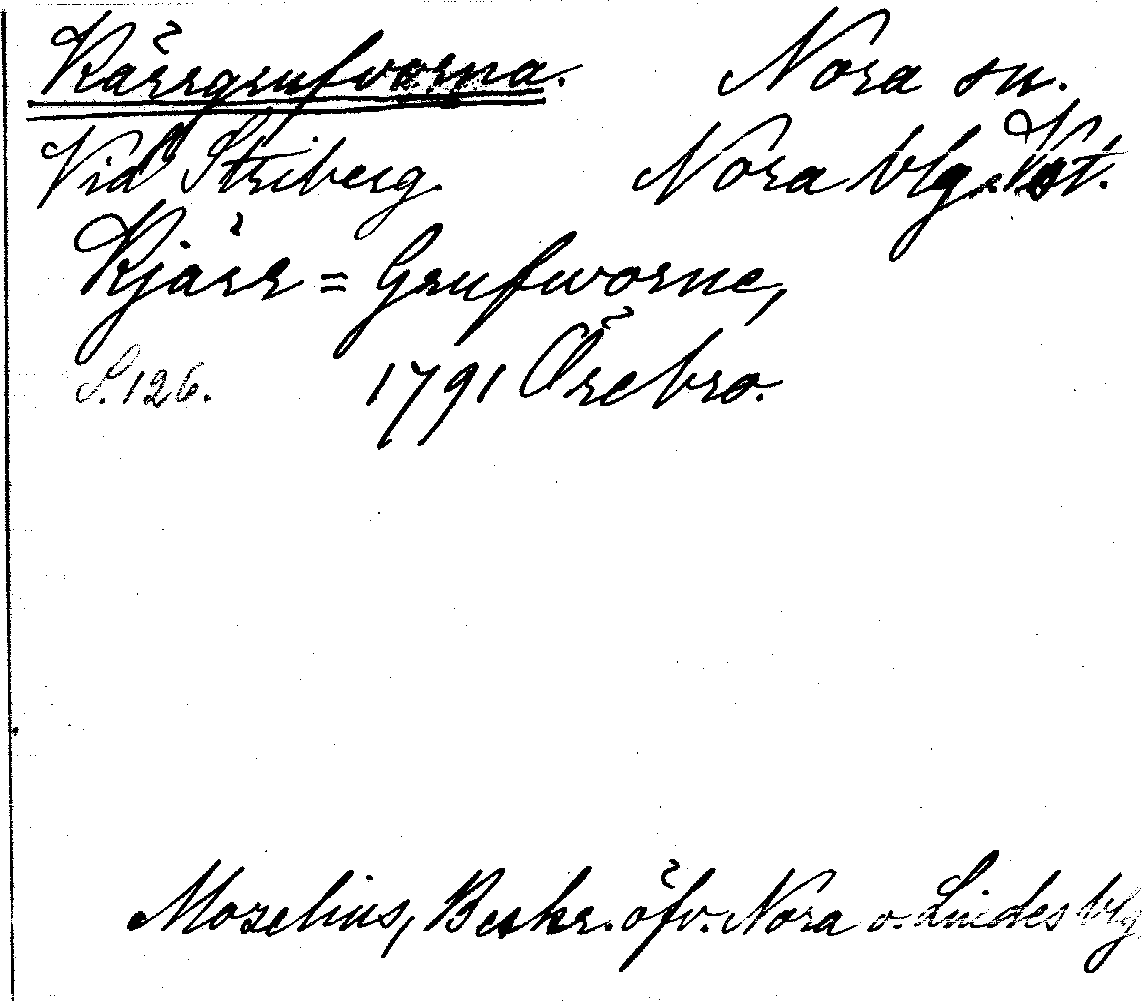 Kärrgrufvorna. Nora sn.
Vid Striberg. Nora blg.
Kjärr=Grufworne,
S. 126. 1791 Örebro.
Moselius, Beskr. öfv. Nora o. Lindes blg